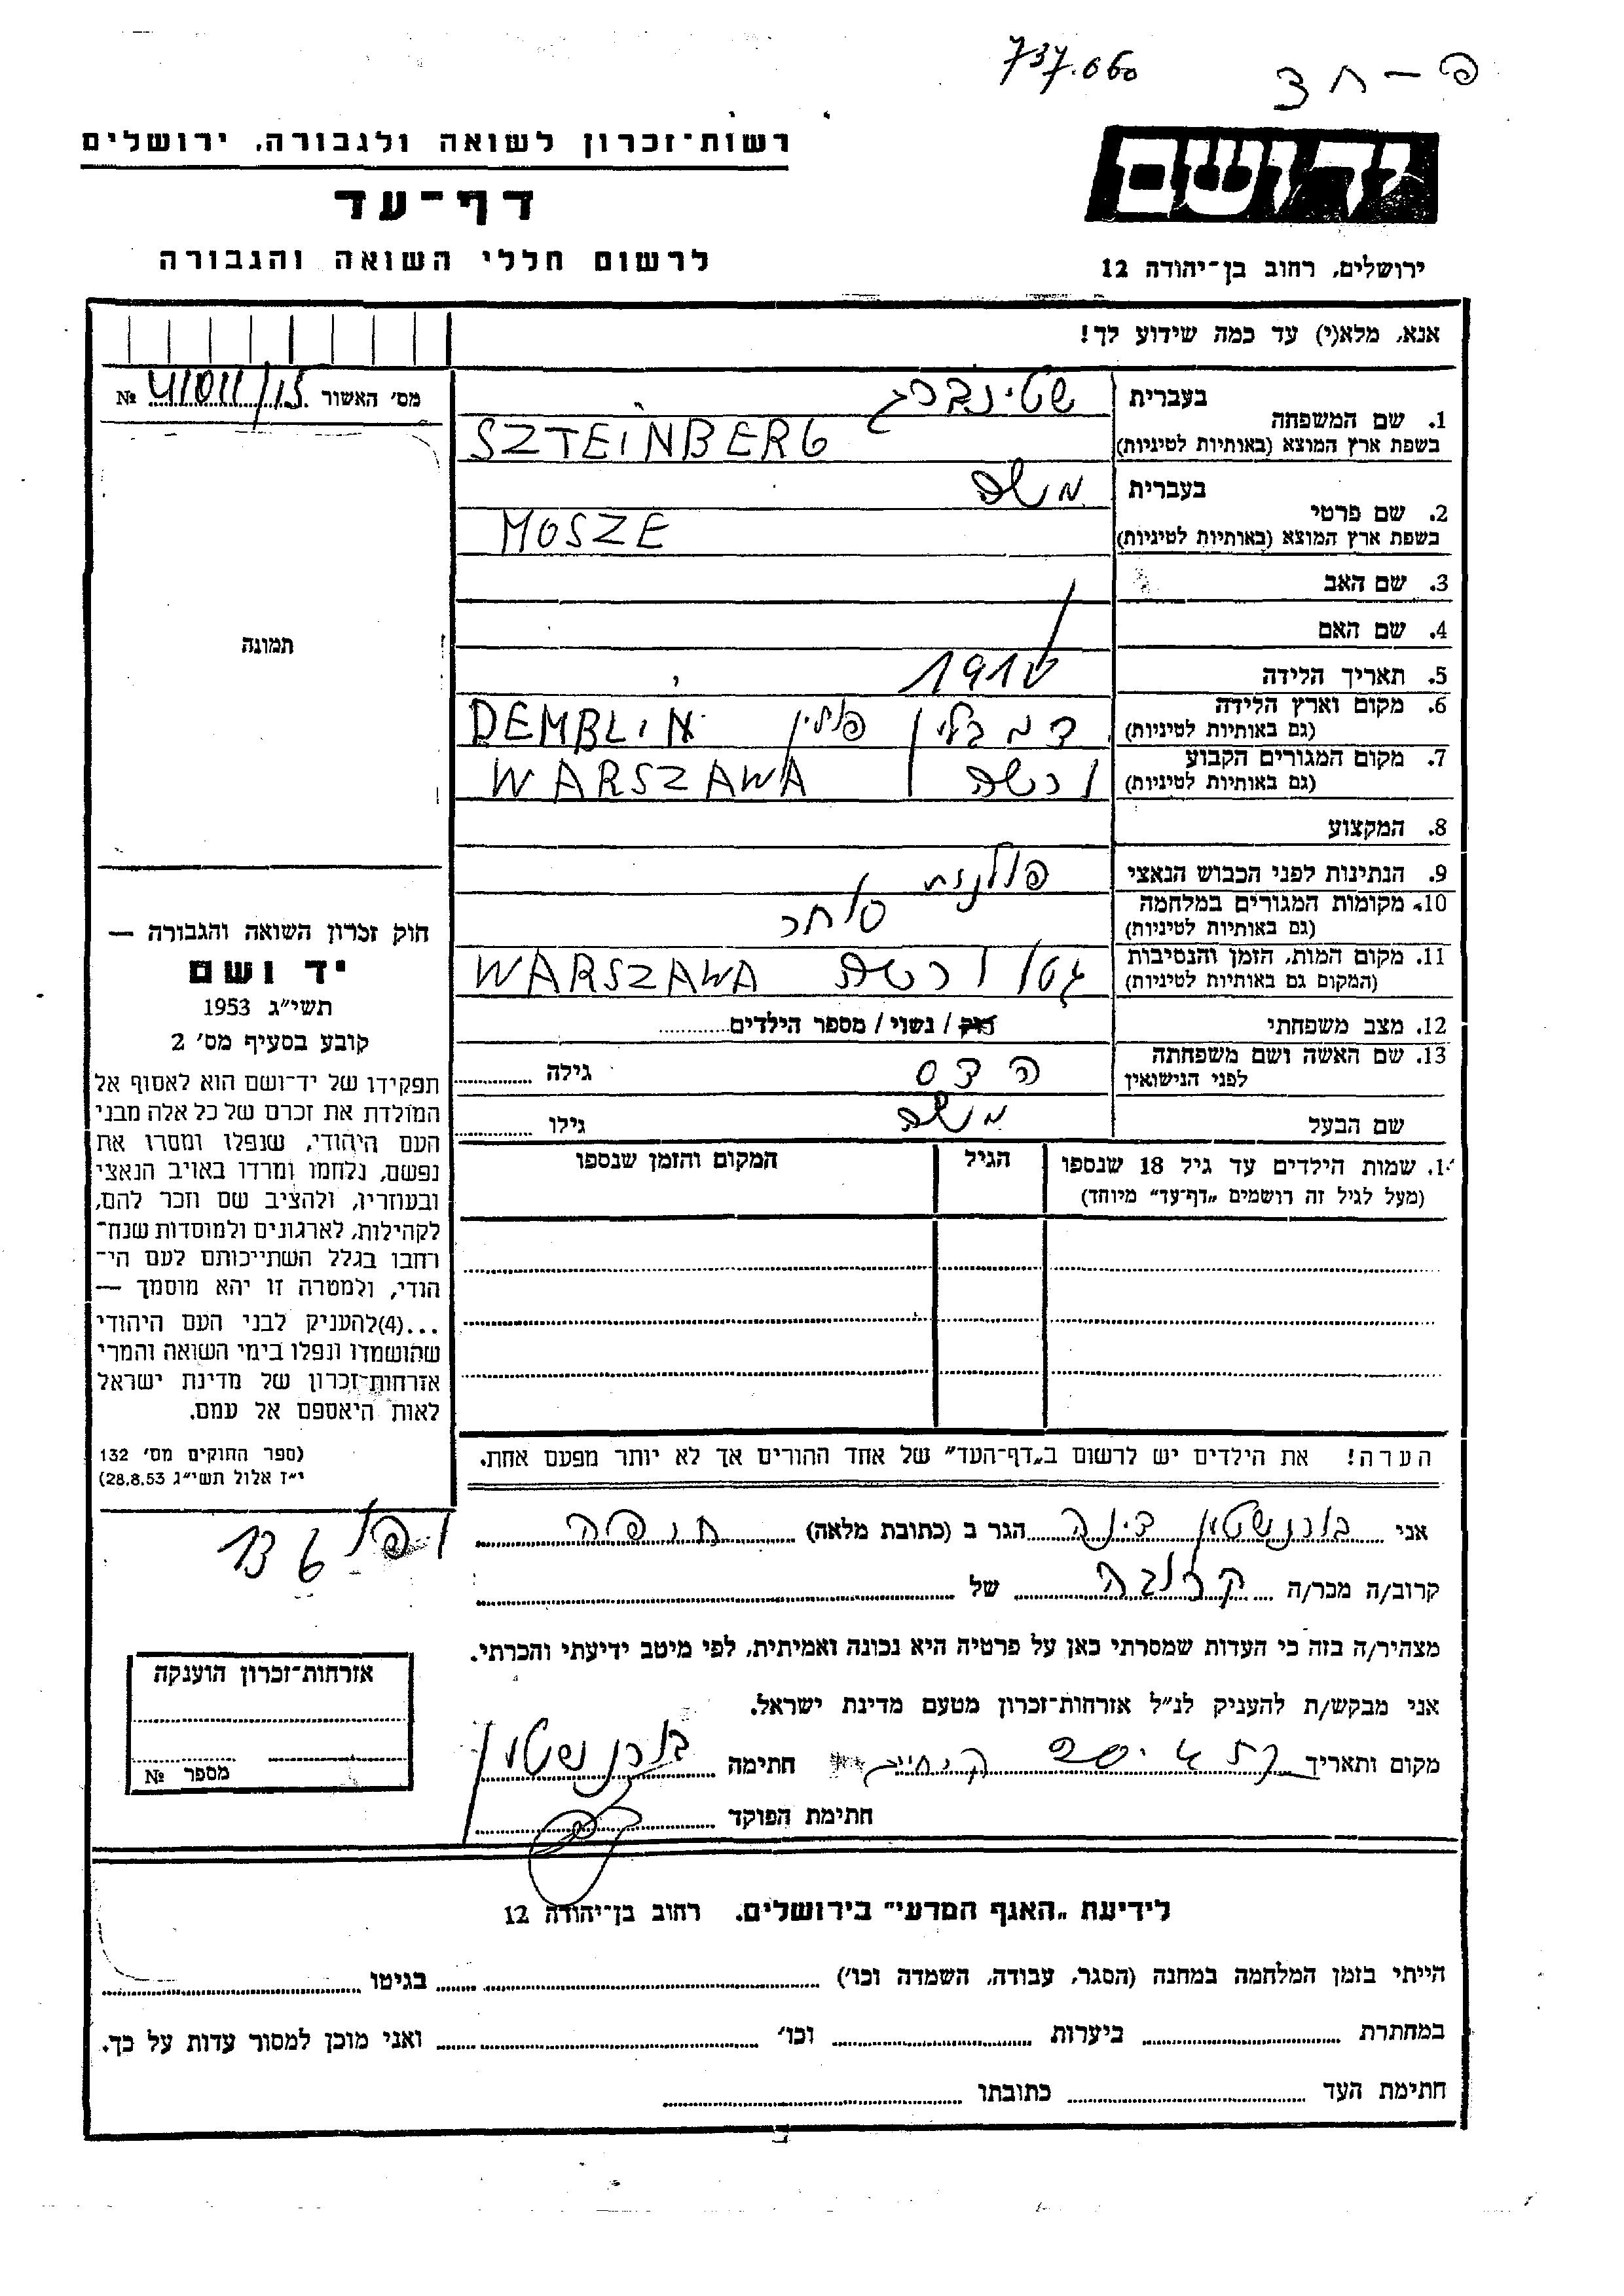 737.060
פ – ח צ
יד ושם
רשות־זכרון לשואה ולגבורה, ירושלים
דף־עד
לרשום חללי השואה והגבורה
ירושלים, רחוב בן־יהודה 12
אנא, מלא(י) עד כמה שידוע לך!
מס׳ האשור № 41011/15
1. שם המשפחה בעברית שטינברג
בשפת ארץ המוצא (באותיות לטיניות) SZTEINBERG
2. שם פרטי בעברית משה
בשפת ארץ המוצא (באותיות לטיניות) MOSZE
3. שם האב
4. שם האם
5. תאריך הלידה 191
6. מקום וארץ הלידה
(גם באותיות לטיניות) דמבלין פולין DEMBLIN
7. מקום המגורים הקבוע
(גם באותיות לטיניות) ורשה WARSZAWA
8. המקצוע סוחר
9. הנתינות לפני הכבוש הנאצי פולנית
10. מקומות המגורים במלחמה
(גם באותיות לטיניות)
11. מקום המות, הזמן והנסיבות
(המקום גם באותיות לטיניות) גטו ורשה WARSZAWA
12. מצב משפחתי רוק / נשוי / מספר הילדים
13. שם האשה ושם משפחתה
לפני הנישואין הדס גילה
שם הבעל משה גילו
1. שמות הילדים עד גיל 18 שנספו
(מעל לגיל זה רושמים „דף־עד״ מיוחד)
הגיל
המקום והזמן שנספו
הערה! את הילדים יש לרשום ב„דף־העד״ של אחד ההורים אך לא יותר מפעם אחת.
תמונה
חוק זכרון השואה והגבורה —
יד ושם
תשי״ג 1953
קובע בסעיף מס׳ 2
תפקידו של יד־ושם הוא לאסוף אל
המולדת את זכרם של כל אלה מבני
העם היהודי, שנפלו ומסרו את
נפשם, נלחמו ומרדו באויב הנאצי
ובעוזריו, ולהציב שם וזכר להם,
לקהילות, לארגונים ולמוסדות שנח־
רחבו בגלל השתייכותם לעם הי־
הודי, ולמטרה זו יהא מוסמך —
...(4)להעניק לבני העם היהודי
שהושמדו ונפלו בימי השואה והמרי
אזרחות־זכרון של מדינת ישראל
לאות היאספם אל עמם.
(ספר החוקים מס׳ 132
י״ז אלול תשי״ג 28.8.53)
אני בורנשטין דינה הגר ב (כתובת מלאה) חיפה
136
קרוב/ה מכר/ה קרובה של
מצהיר/ה בזה כי העדות שמסרתי כאן על פרטיה היא נכונה ואמיתית, לפי מיטב ידיעתי והכרתי.
אני מבקש/ת להעניק לנ״ל אזרחות־זכרון מטעם מדינת ישראל.
מקום ותאריך חתימה בורנשטין
חתימת הפוקד
אזרחות־זכרון הוענקה
מספר №
לידיעת „האגף המדעי״ בירושלים, רחוב בן־יהודה 12
הייתי בזמן המלחמה במחנה (הסגר, עבודה, השמדה וכו׳) בגיטו
במחתרת ביערות וכו׳ ואני מוכן למסור עדות על כך.
חתימת העד כתובתו